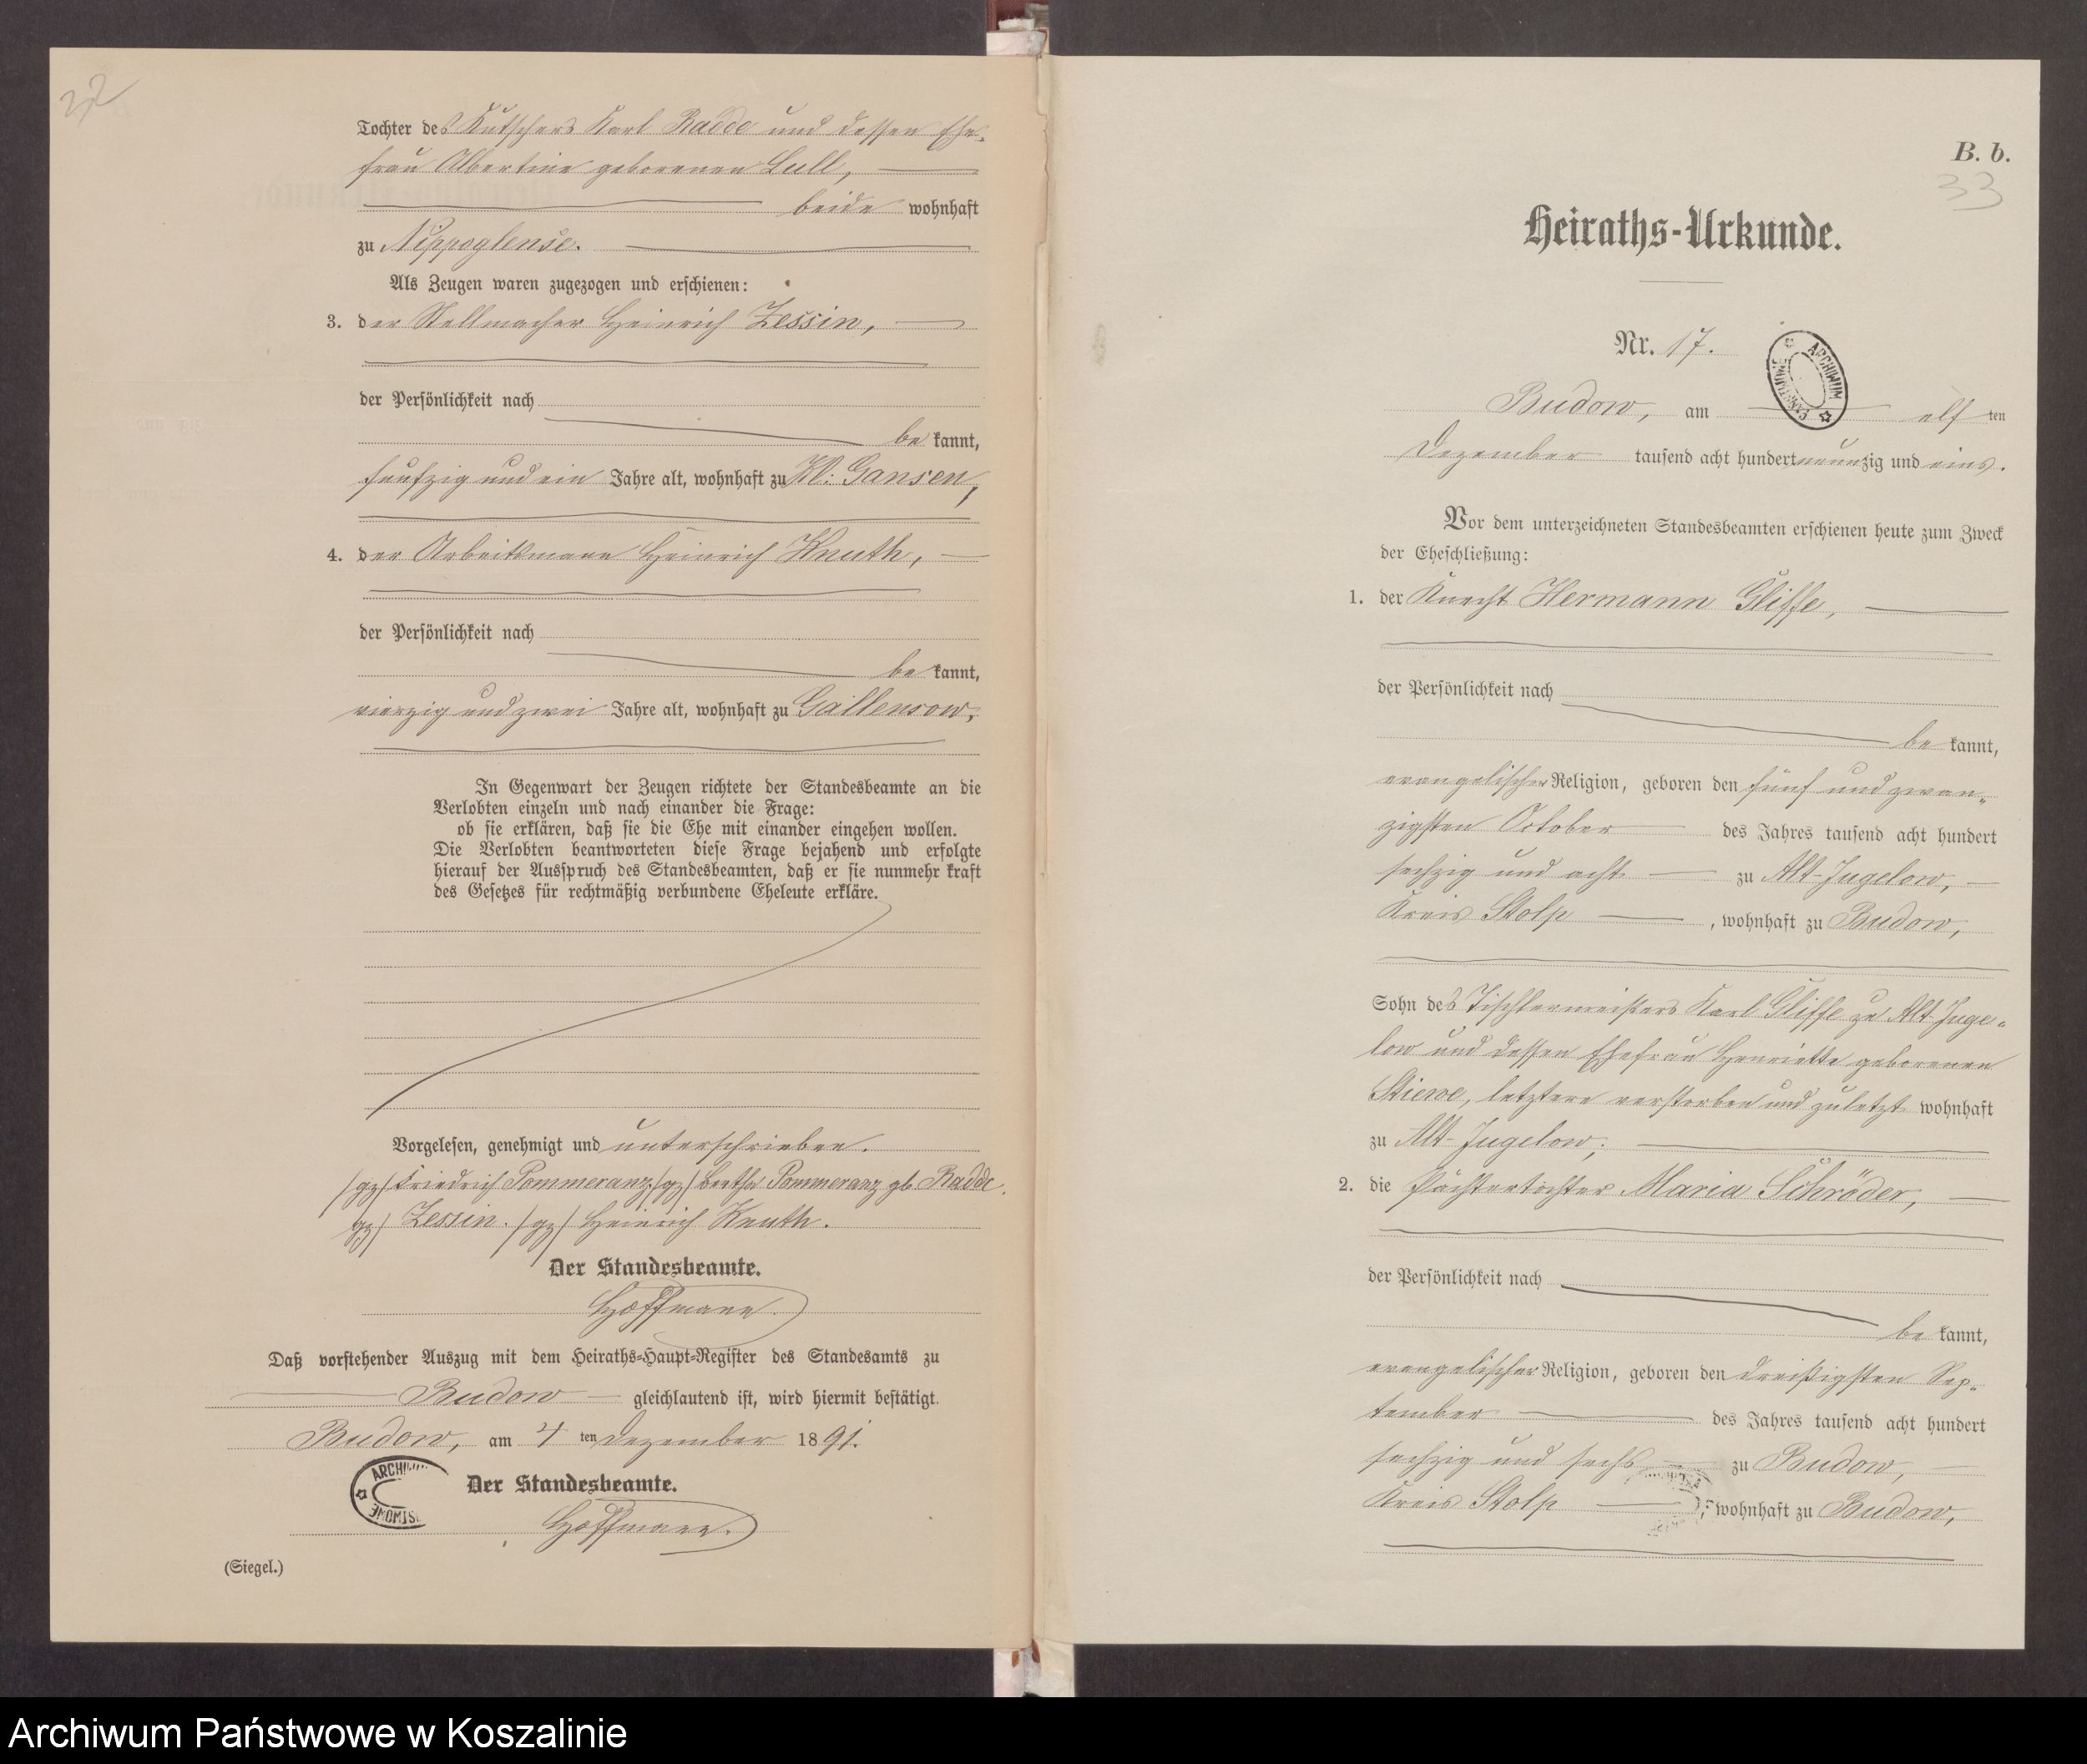 32
Tochter des Kutschers Karl Radde und dessen Ehe-
frau Albertine geborenen Lull,
beide wohnhaft
zu Nippoglense.
Als Zeugen waren zugezogen und erschienen:
3. der Stellmacher Heinrich Zessin,
der Persönlichkeit nach
be kannt,
fünfzig und ein Jahre alt, wohnhaft zu Kl: Gansen,
4. der Arbeitsmann Heinrich Knuth,
der Persönlichkeit nach
be kannt,
vierzig und zwei Jahre alt, wohnhaft zu Gallensow.
In Gegenwart der Zeugen richtete der Standesbeamte an die
Verlobten einzeln und nach einander die Frage:
ob sie erklären, daß sie die Ehe mit einander eingehen wollen.
Die Verlobten beantworteten diese Frage bejahend und erfolgte
hierauf der Ausspruch des Standesbeamten, daß er sie nunmehr kraft
des Gesetzes für rechtmäßig verbundene Eheleute erkläre.
Vorgelesen, genehmigt und unterschrieben.
/gz/ Friedrich Pommeranz /gz/ Bertha Pommeranz gb Radde.
/gz/ Zessin. /gz/ Heinrich Knuth.
Der Standesbeamte.
Hoffmann.
Daß vorstehender Auszug mit dem Heiraths-Haupt-Register des Standesamts zu
Budow gleichlautend ist, wird hiermit bestätigt.
Budow, am 4 ten Dezember 1891.
ARCHIWUM
Der Standesbeamte.
Hoffmann.
(Siegel.)
B. b.
33
Heiraths-Urkunde.
Nr. 17.
ARCHIWUM PAŃSTWOWE
Budow, am elf ten
Dezember tausend acht hundert neunzig und eins.
Vor dem unterzeichneten Standesbeamten erschienen heute zum Zweck
der Eheschließung:
1. der Knecht Hermann Gliffe,
der Persönlichkeit nach
be kannt,
evangelischer Religion, geboren den fünf und zwan-
zigsten October des Jahres tausend acht hundert
sechzig und acht zu Alt-Jugelow,
Kreis Stolp, wohnhaft zu Budow,
Sohn des Tischlermeisters Karl Gliffe zu Alt Juge-
low und dessen Ehefrau Henriette geborenen
Stiewe, letztere verstorben und zuletzt wohnhaft
zu Alt-Jugelow;
2. die Pächtertochter Maria Schröder,
der Persönlichkeit nach
be kannt,
evangelischer Religion, geboren den dreißigsten Sep-
tember des Jahres tausend acht hundert
sechzig und sechs zu Budow,
Kreis Stolp, wohnhaft zu Budow,
Archiwum Państwowe w Koszalinie